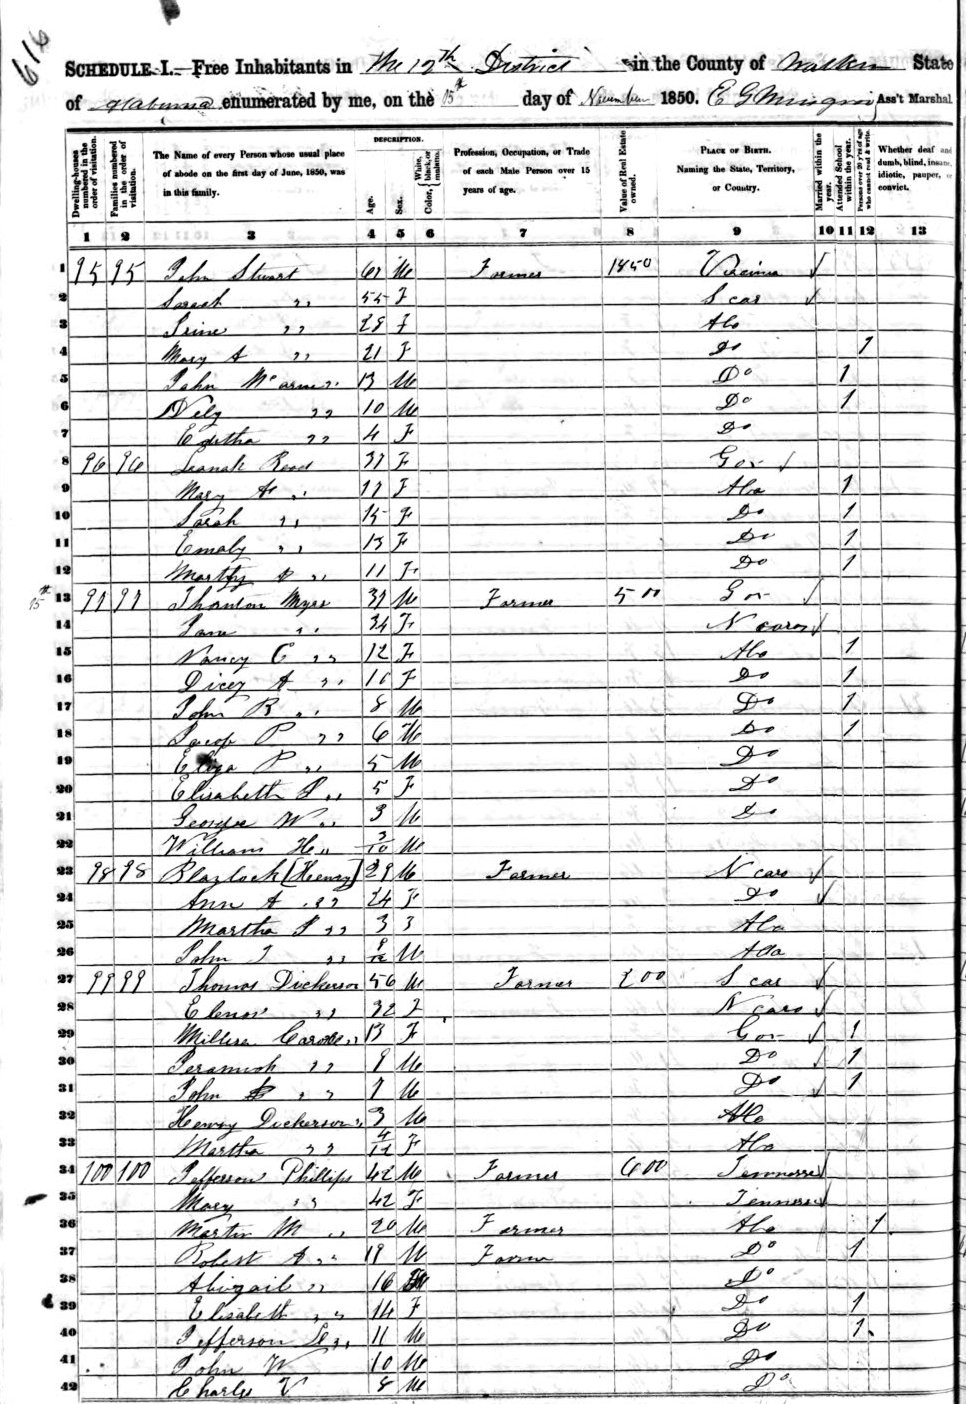 616
SCHEDULE I.—Free Inhabitants in The 19th District in the County of Walker State
of Alabama enumerated by me, on the 15th day of November 1850. E G Ass't Marshal
Dwelling-houses numbered in the order of visitation.
Families numbered in the order of visitation.
The Name of every Person whose usual place of abode on the first day of June, 1850, was in this family.
DESCRIPTION.
Age.
Sex.
Color, White, black, or mulatto.
Profession, Occupation, or Trade of each Male Person over 15 years of age.
Value of Real Estate owned.
PLACE OF BIRTH. Naming the State, Territory, or Country.
Married within the year.
Attended School within the year.
Persons over 20 y'rs of age who cannot read & write.
Whether deaf and dumb, blind, insane, idiotic, pauper, or convict.
1 2 3 4 5 6 7 8 9 10 11 12 13
1 95 95 John Stuart M Farmer 1850 Virginia
2 Sarah " 55 F S car
3 " 28 F Ala
4 Mary A " 21 F Do 1
5 John 13 M Do 1
6 " 10 M Do 1
7 Editha " 4 F Do
8 96 96 Reed 37 F Geo
9 Mary A " 17 F Ala 1
10 Sarah " 15 F Do 1
11 Emaly " 13 F Do 1
12 " 11 F Do 1
15th 13 97 97 Thornton Myrs 37 M Farmer 500 Geo
14 Jane " 34 F N caro
15 Nancy C " 12 F Ala 1
16 Dicey A " 10 F Do 1
17 John B " 8 M Do 1
18 Jacop P " 6 M Do 1
19 P " 5 M Do
20 Elisabeth S " 5 F Do
21 George W " 3 M Do
22 William H " 3/10 M
23 98 98 Blazlock [Henry] 29 M Farmer N caro
24 Ann A " 24 F Do
25 Martha " 3 F Ala
26 John " M Ala
27 99 99 Thomas Dickerson 56 M Farmer 200 S car
28 Elenor " 32 F N caro
29 13 F Geo 1
30 " 9 M Do 1
31 John " 7 M Do 1
32 Henry Dickerson " 3 M Ala
33 Martha " 4/12 F Ala
34 100 100 Jefferson Phillips 42 M Farmer 600 Tennessee
35 Mary " 42 F Tennessee
36 Martin M " 20 M Farmer Ala 1
37 Robert A " 19 M Farmer Do 1
38 Abigail " 16 Do
39 Elisabeth " 14 F Do 1
40 Jefferson " 11 M Do 1
41 John W 10 M Do
42 Charles V 8 M Do